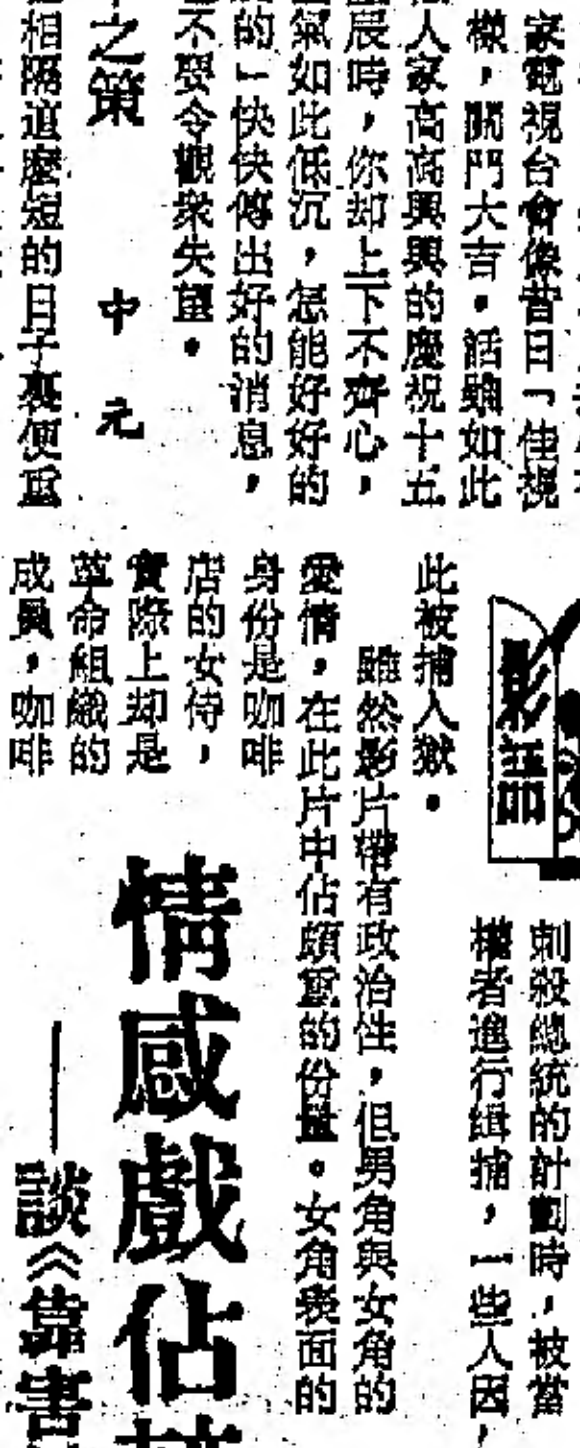 家電視台會像昔日「佳視
樣，關門大吉。話雖如此
人家高高興興的慶祝十五
辰時，你却上下不齊心，
氣如此低沉，怎能好好的
的」快快傳出好的消息，
不要令觀衆失望。
之策　中元
相隔這麼短的日子裏便重
影話
刺殺總統的計劃時，被當
權者進行緝捕，一些人因，
此被捕入獄。
雖然影片帶有政治性，但男角與女角的
愛情，在此片中佔頗重的份量。女角表面的
身份是咖啡
店的女侍，
實際上却是
革命組織的
成員，咖啡
情感戲佔
——談《靠害